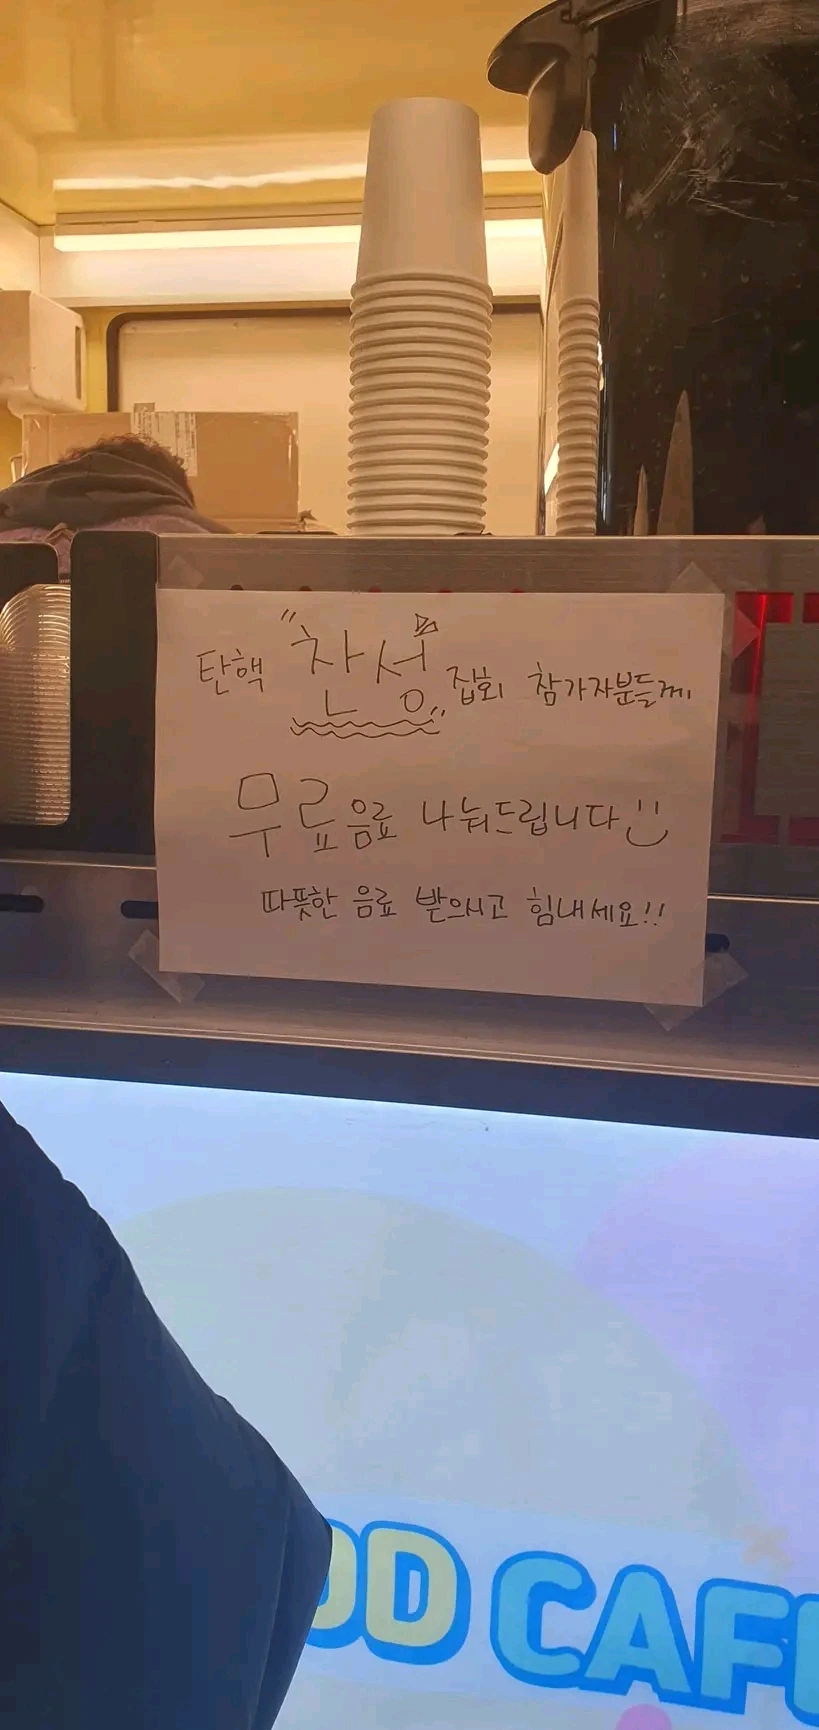 탄핵 "찬성" 집회 참가자분들께
무료음료 나눠드립니다 :)
따뜻한 음료 받으시고 힘내세요!!
CAF